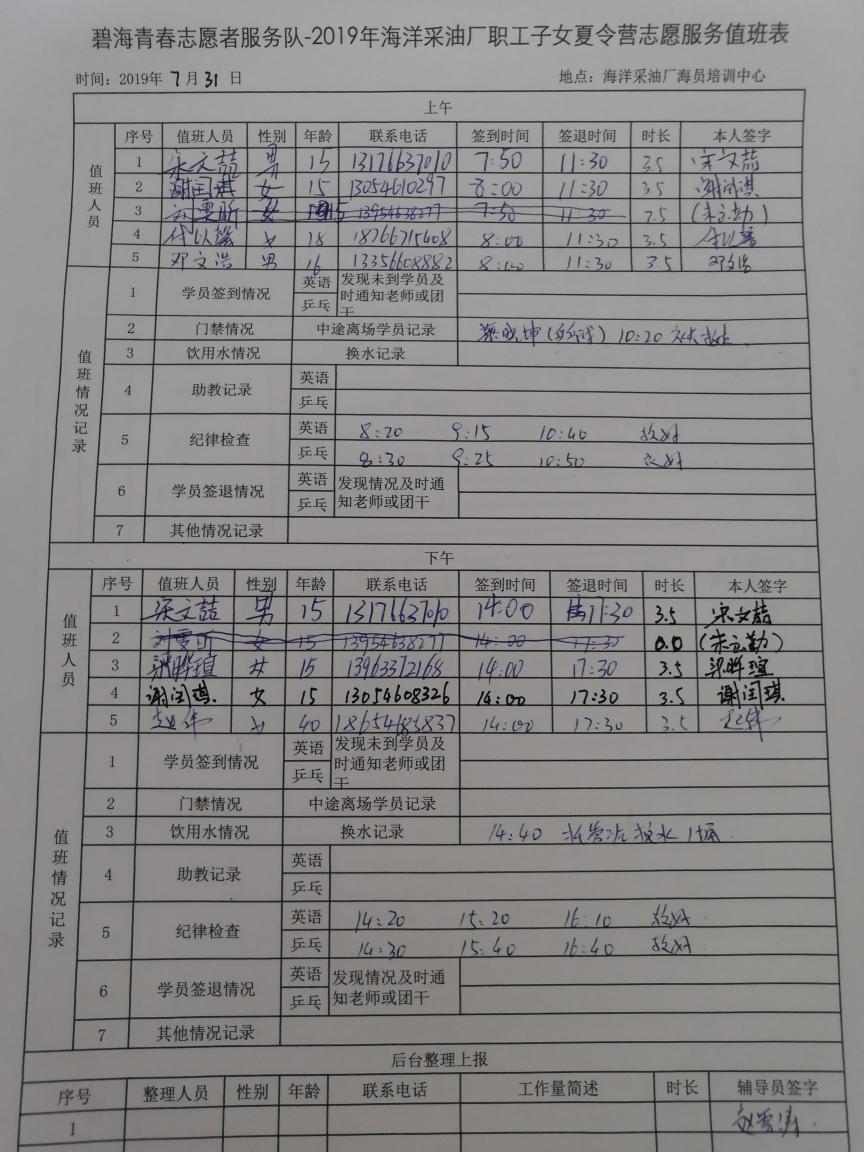 碧海青春志愿者服务队-2019年海洋采油厂职工子女夏令营志愿服务值班表
时间：2019年 7 月 31 日 地点：海洋采油厂海员培训中心
上午
值班人员
序号 值班人员 性别 年龄 联系电话 签到时间 签退时间 时长 本人签字
1 宋文喆 男 15 13176637010 7:50 11:30 3.5 宋文喆
2 谢闰琪 女 15 13054610297 8:00 11:30 3.5 谢闰琪
3 女 15 13954638277 7:50 11:30
4 女 18 18766715408 8:00 11:30 3.5
5 邓文浩 男 16 13356608882 8:00 11:30 3.5 邓文浩
值班情况记录
1 学员签到情况 英语 发现未到学员及时通知老师或团干
乒乓
2 门禁情况 中途离场学员记录 10:20
3 饮用水情况 换水记录
4 助教记录 英语
乒乓
5 纪律检查 英语 8:20 9:15 10:40 较好
乒乓 8:30 9:25 10:50 较好
6 学员签退情况 英语 发现情况及时通知老师或团干
乒乓
7 其他情况记录
下午
值班人员
序号 值班人员 性别 年龄 联系电话 签到时间 签退时间 时长 本人签字
1 宋文喆 男 15 13176637010 14:00 17:30 3.5 宋文喆
2 女 15 13954638277 14:00 17:30 0.0
3 梁晔瑄 女 15 13963372168 14:00 17:30 3.5 梁晔瑄
4 谢闰琪 女 15 13054608326 14:00 17:30 3.5 谢闰琪
5 赵伟 女 40 18654685837 14:00 17:30 3.5 赵伟
值班情况记录
1 学员签到情况 英语 发现未到学员及时通知老师或团干
乒乓
2 门禁情况 中途离场学员记录
3 饮用水情况 换水记录 14:40 换水 1桶
4 助教记录 英语
乒乓
5 纪律检查 英语 14:20 15:20 16:10 较好
乒乓 14:30 15:40 16:40 较好
6 学员签退情况 英语 发现情况及时通知老师或团干
乒乓
7 其他情况记录
后台整理上报
序号 整理人员 性别 年龄 联系电话 工作量简述 时长 辅导员签字
1